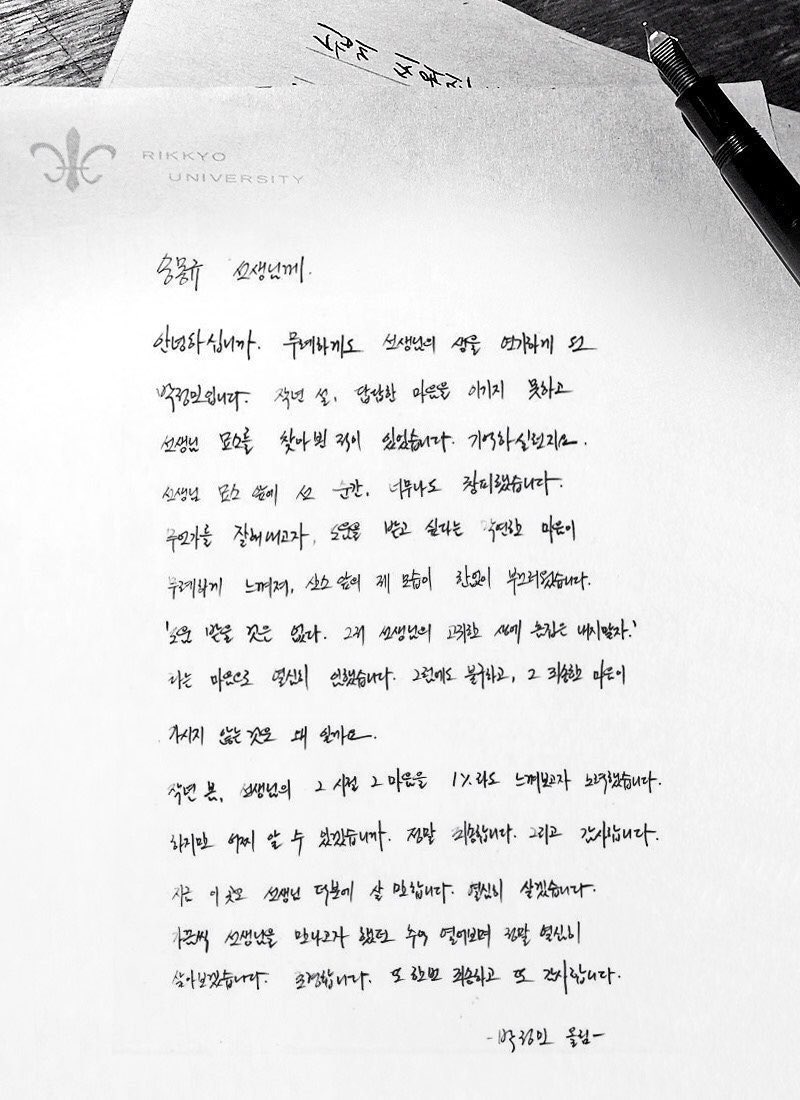 RIKKYO
UNIVERSITY
송몽규 선생님께.
안녕하십니까. 무례하게도 선생님의 생을 연기하게 된
박정민입니다. 작년 설, 답답한 마음을 이기지 못하고
선생님 묘소를 찾아뵌 적이 있었습니다. 기억하실런지요.
선생님 묘소 앞에 선 순간, 너무나도 창피했습니다.
무언가를 잘해내고자, 도움을 받고 싶다는 막연한 마음이
무례하게 느껴져, 산소 앞의 제 모습이 한없이 부끄러웠습니다.
'도움 받을 것은 없다. 그저 선생님의 고귀한 생에 흠집은 내지말자.'
라는 마음으로 열심히 연했습니다. 그럼에도 불구하고, 그 죄송한 마음이
가시지 않는 것은 왜 일까요.
작년 봄, 선생님의 그 시절 그 마음을 1%라도 느껴보고자 노력했습니다.
하지만 어찌 알 수 있겠습니까. 정말 죄송합니다. 그리고 감사합니다.
지금 이 곳은 선생님 덕분에 살 만합니다. 열심히 살겠습니다.
가끔씩 선생님을 만나고자 했던 수첩 열어보며 정말 열심히
살아보겠습니다. 존경합니다. 또 한번 죄송하고 또 감사합니다.
-박정민 올림-